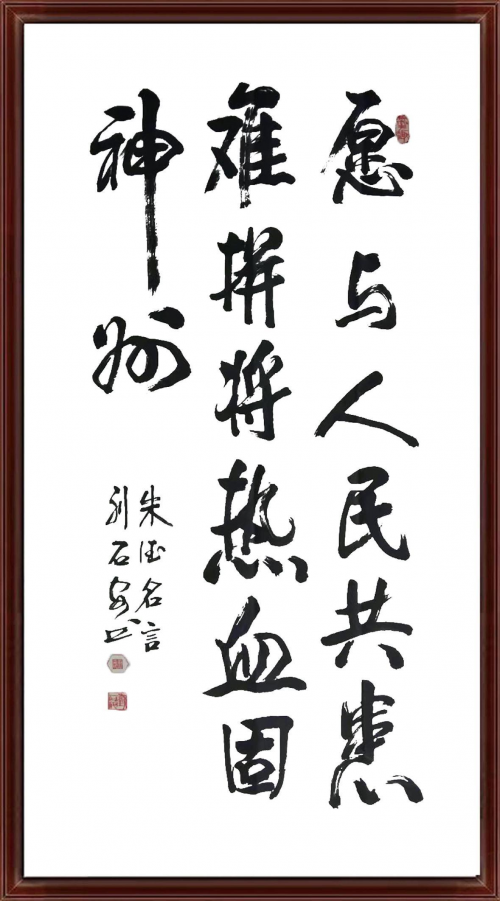 愿与人民共患
难拼将热血固
神州
朱德名言
刘石安书